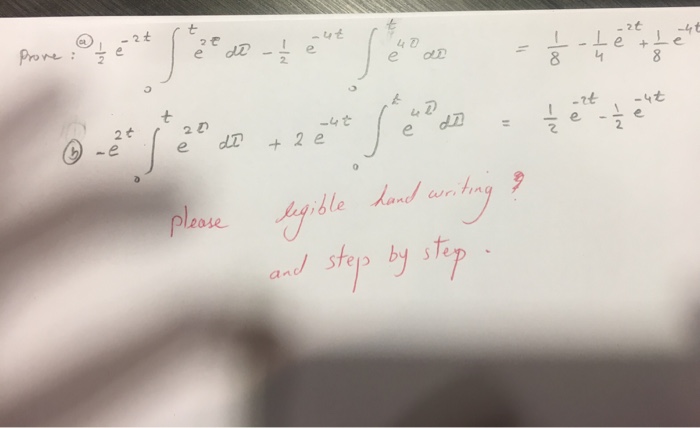 Prove : ⓐ ½ e^-2t ∫₀^t e^2τ dτ - ½ e^-4t ∫₀^t e^4τ dτ = 1/8 - 1/4 e^-2t + 1/8 e^-4t
ⓑ -e^2t ∫₀^t e^2τ dτ + 2 e^-4t ∫₀^t e^4τ dτ = ½ e^-2t - ½ e^-4t
please legible hand writing ?
and step by step .